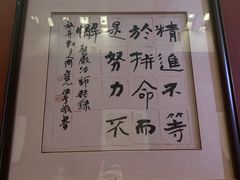 精進不等
於拼命而
是努力不
懈 聖嚴法師語錄
敬書